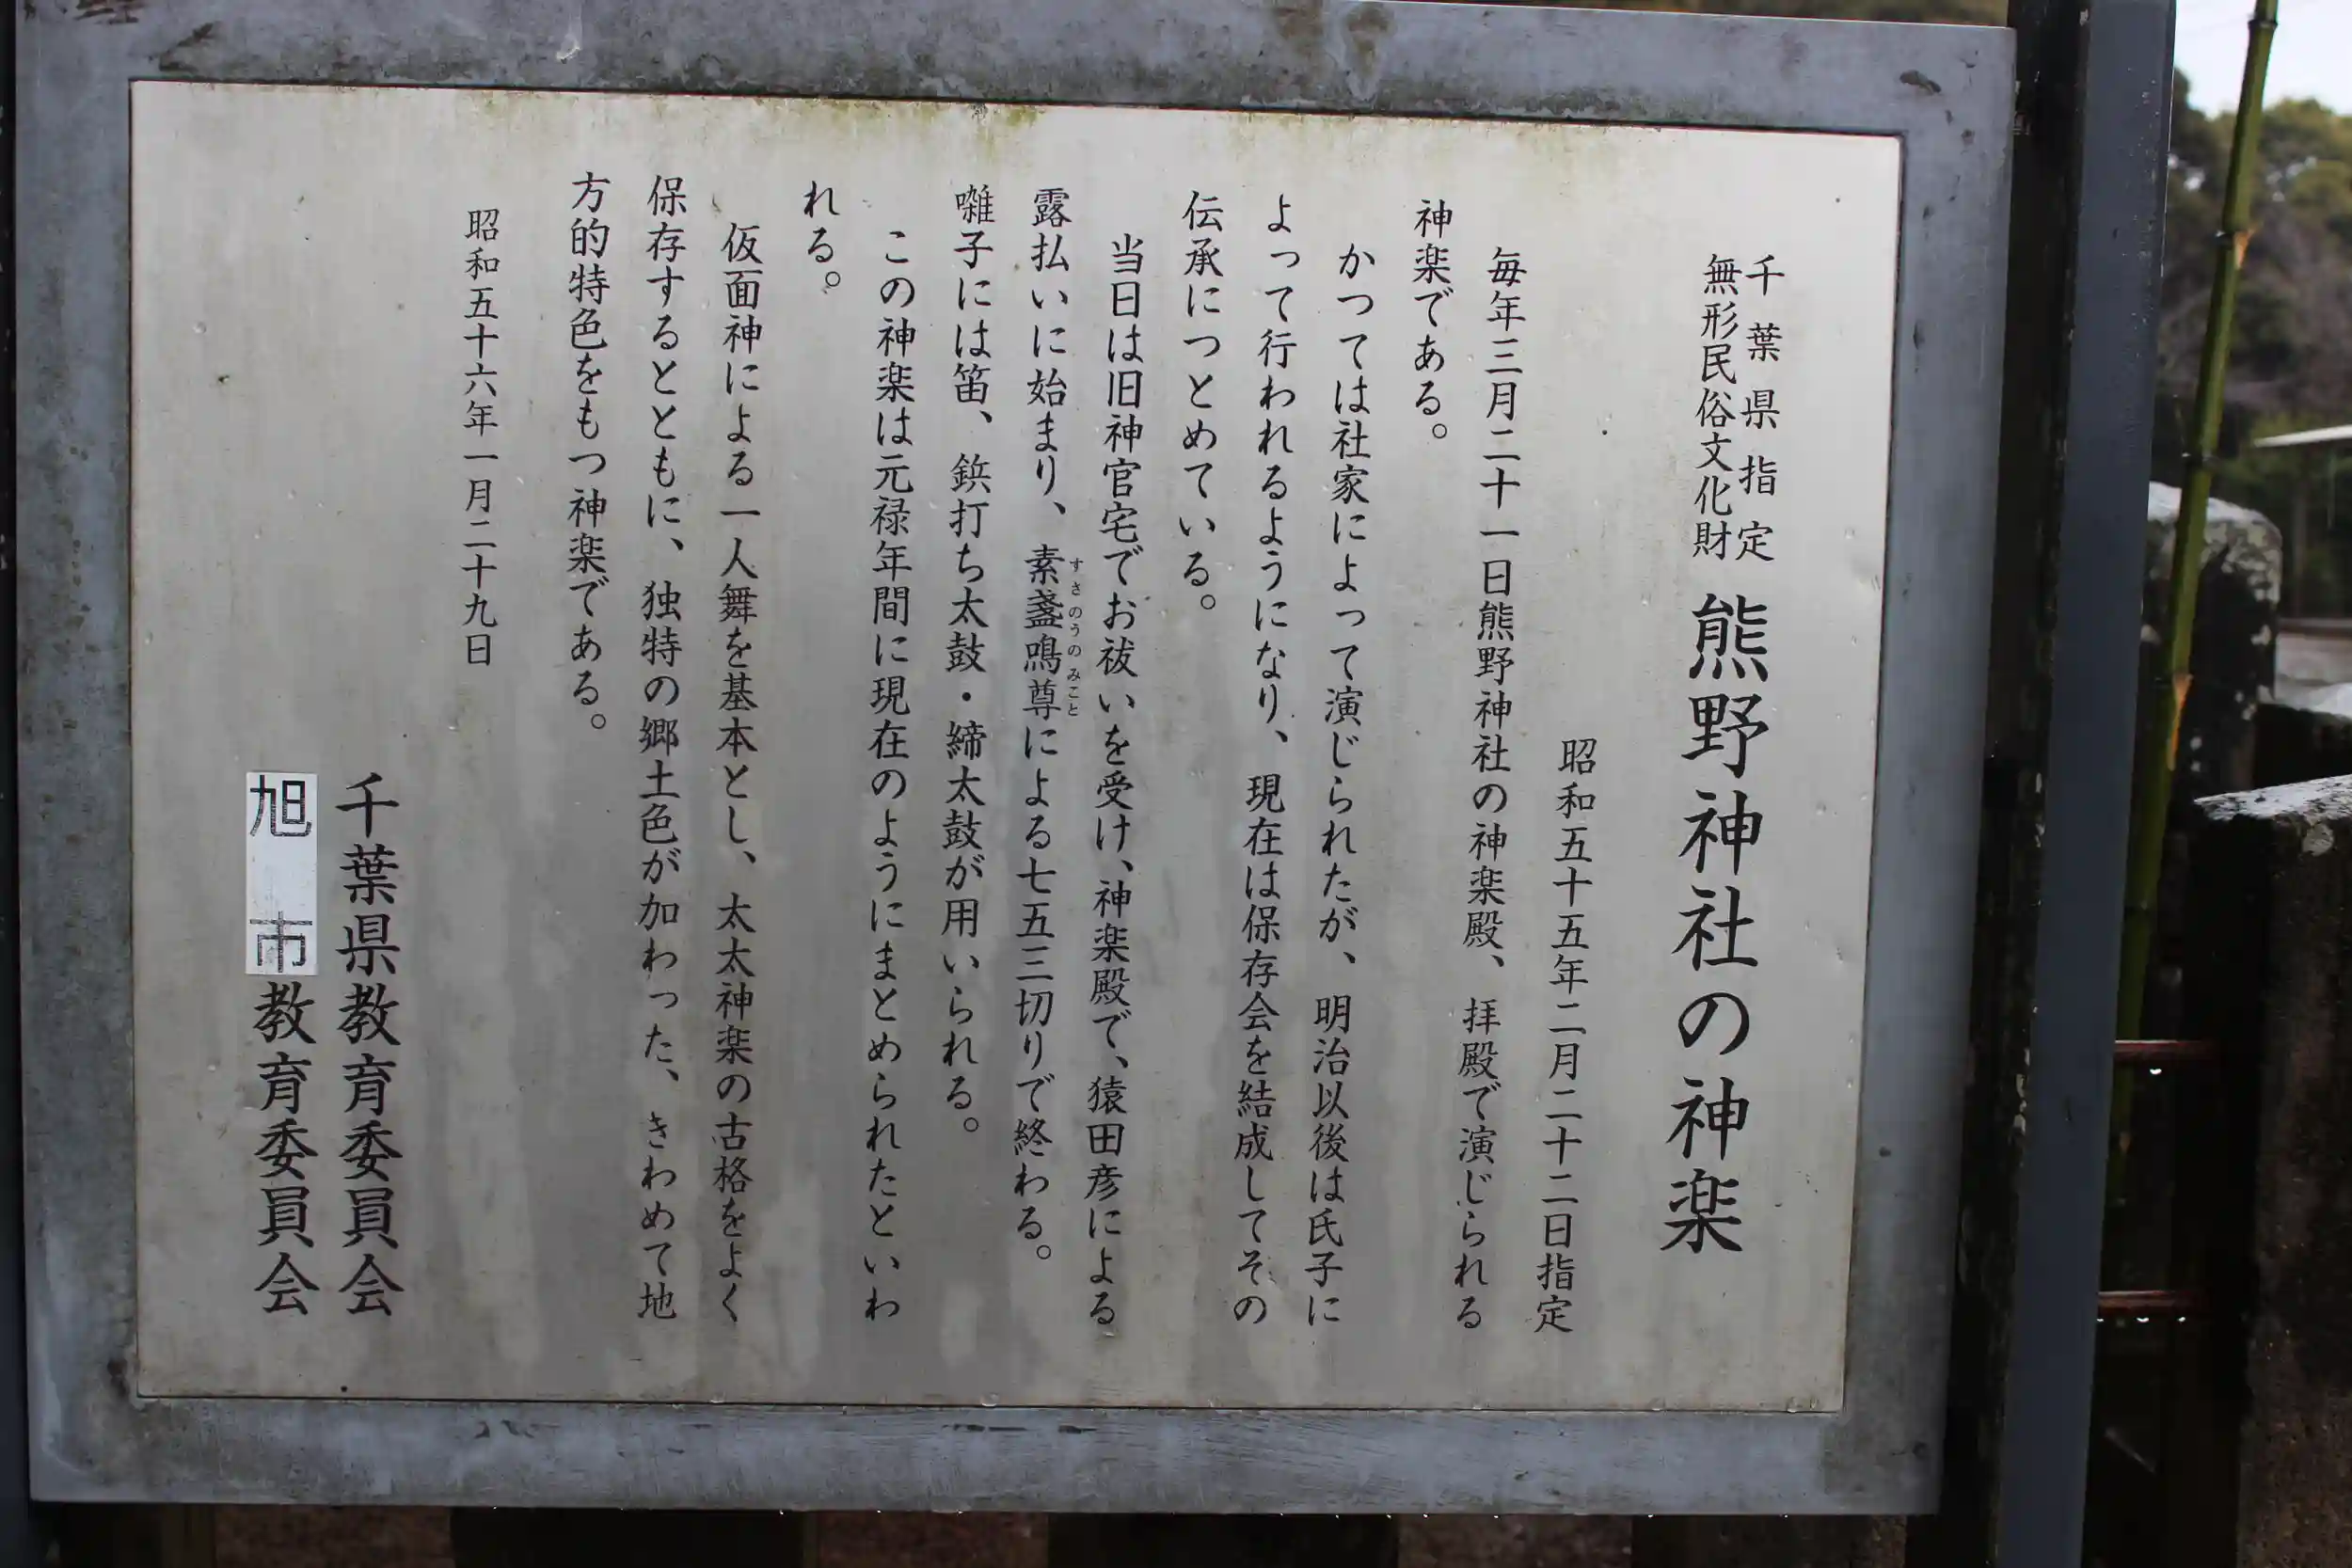 千葉県指定
無形民俗文化財
熊野神社の神楽
昭和五十五年二月二十二日指定
毎年三月二十一日熊野神社の神楽殿、拝殿で演じられる
神楽である。
かつては社家によって演じられたが、明治以後は氏子に
よって行われるようになり、現在は保存会を結成してその
伝承につとめている。
当日は旧神官宅でお祓いを受け、神楽殿で、猿田彦による
露払いに始まり、素盞鳴尊による七五三切りで終わる。
すさのうのみこと
囃子には笛、鋲打ち太鼓・締太鼓が用いられる。
この神楽は元禄年間に現在のようにまとめられたといわ
れる。
仮面神による一人舞を基本とし、太太神楽の古格をよく
保存するとともに、独特の郷土色が加わった、きわめて地
方的特色をもつ神楽である。
昭和五十六年一月二十九日
千葉県教育委員会
旭市教育委員会